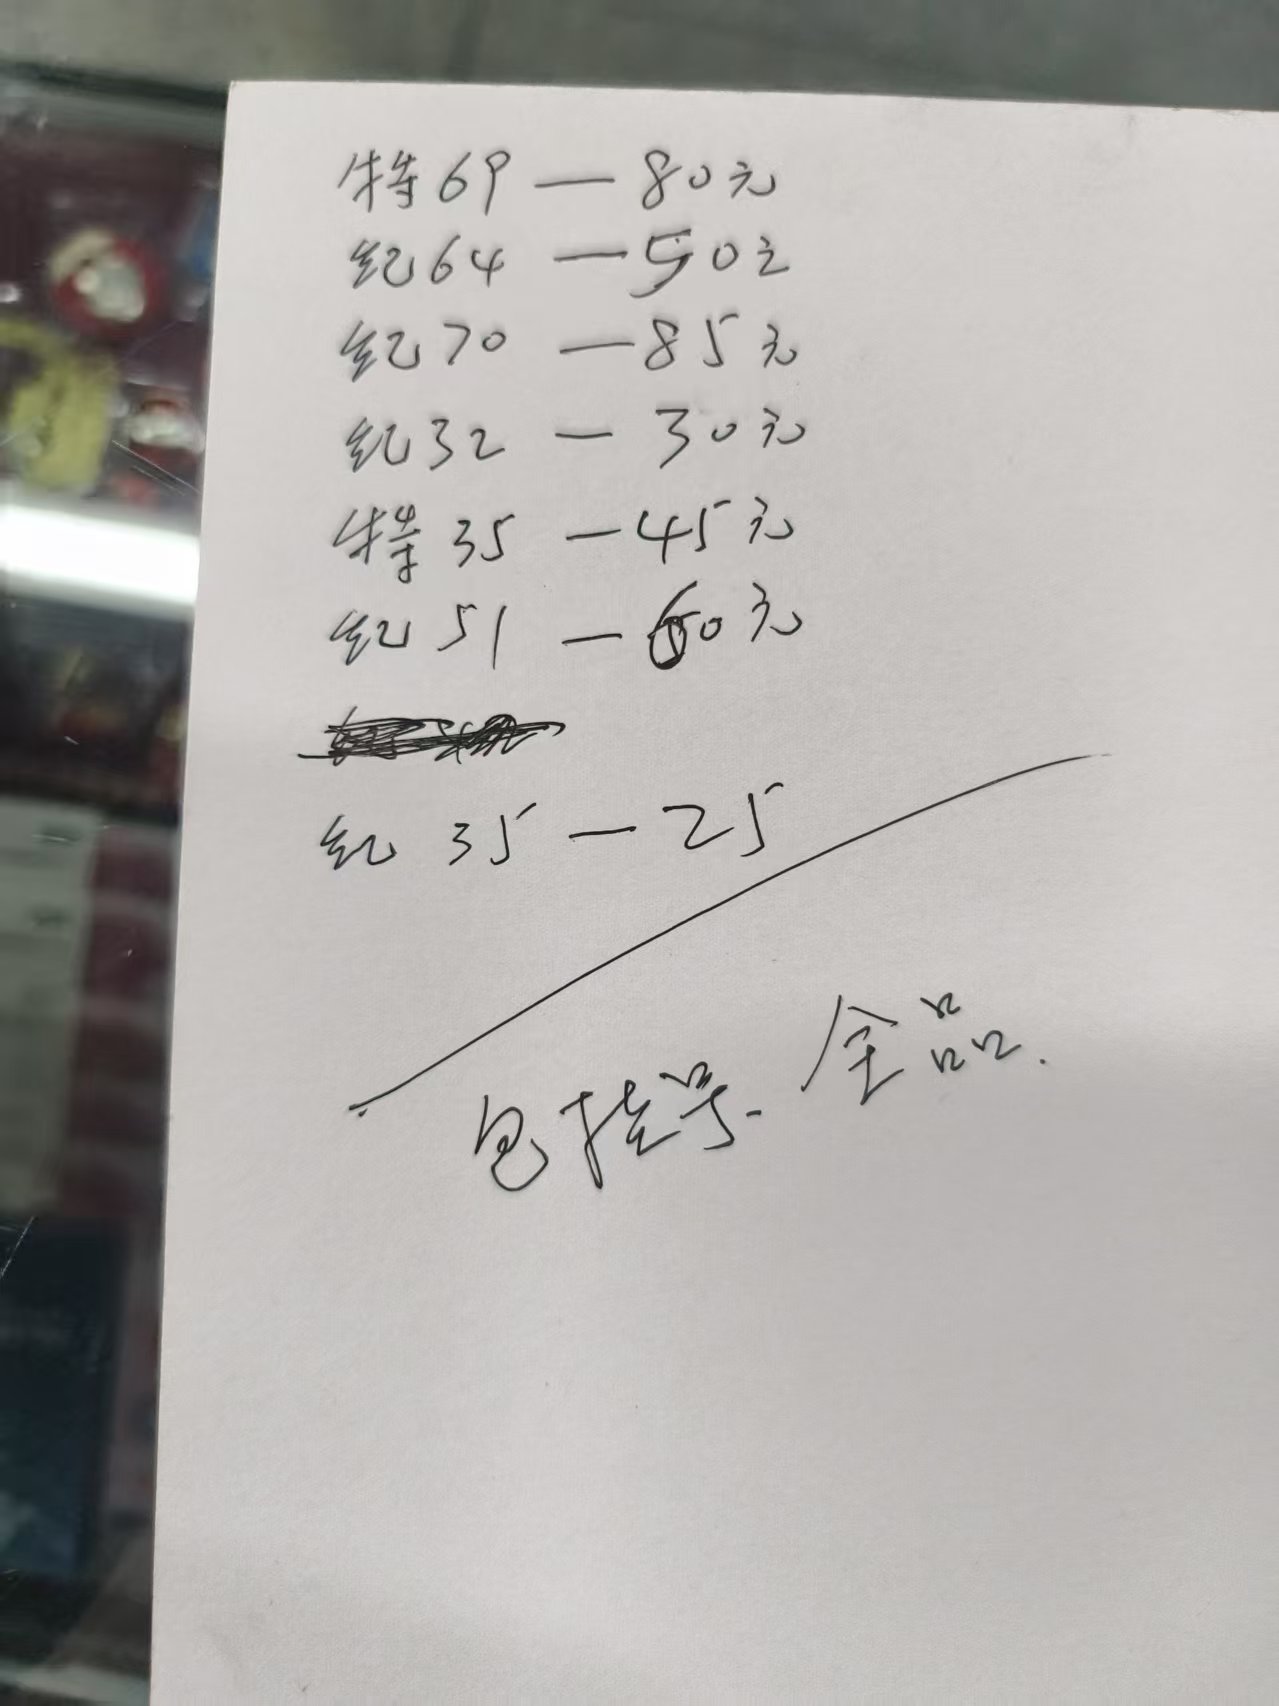 特69—80元
纪64—50元
纪70—85元
纪32—30元
特35—45元
纪51—60元
纪35—25
包挂号.全品.